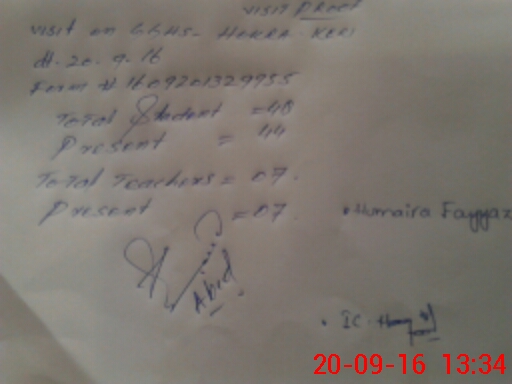 VISIT PROOF
visit on GGHS- HOKRA- KERI
dt. 20. 9. 16
Form # 1609201329955
Total Student = 48
Present = 44
Total Teachers = 07.
Present = 07.
Humaira Fayyaz
Abid
IC.
20-09-16 13:34